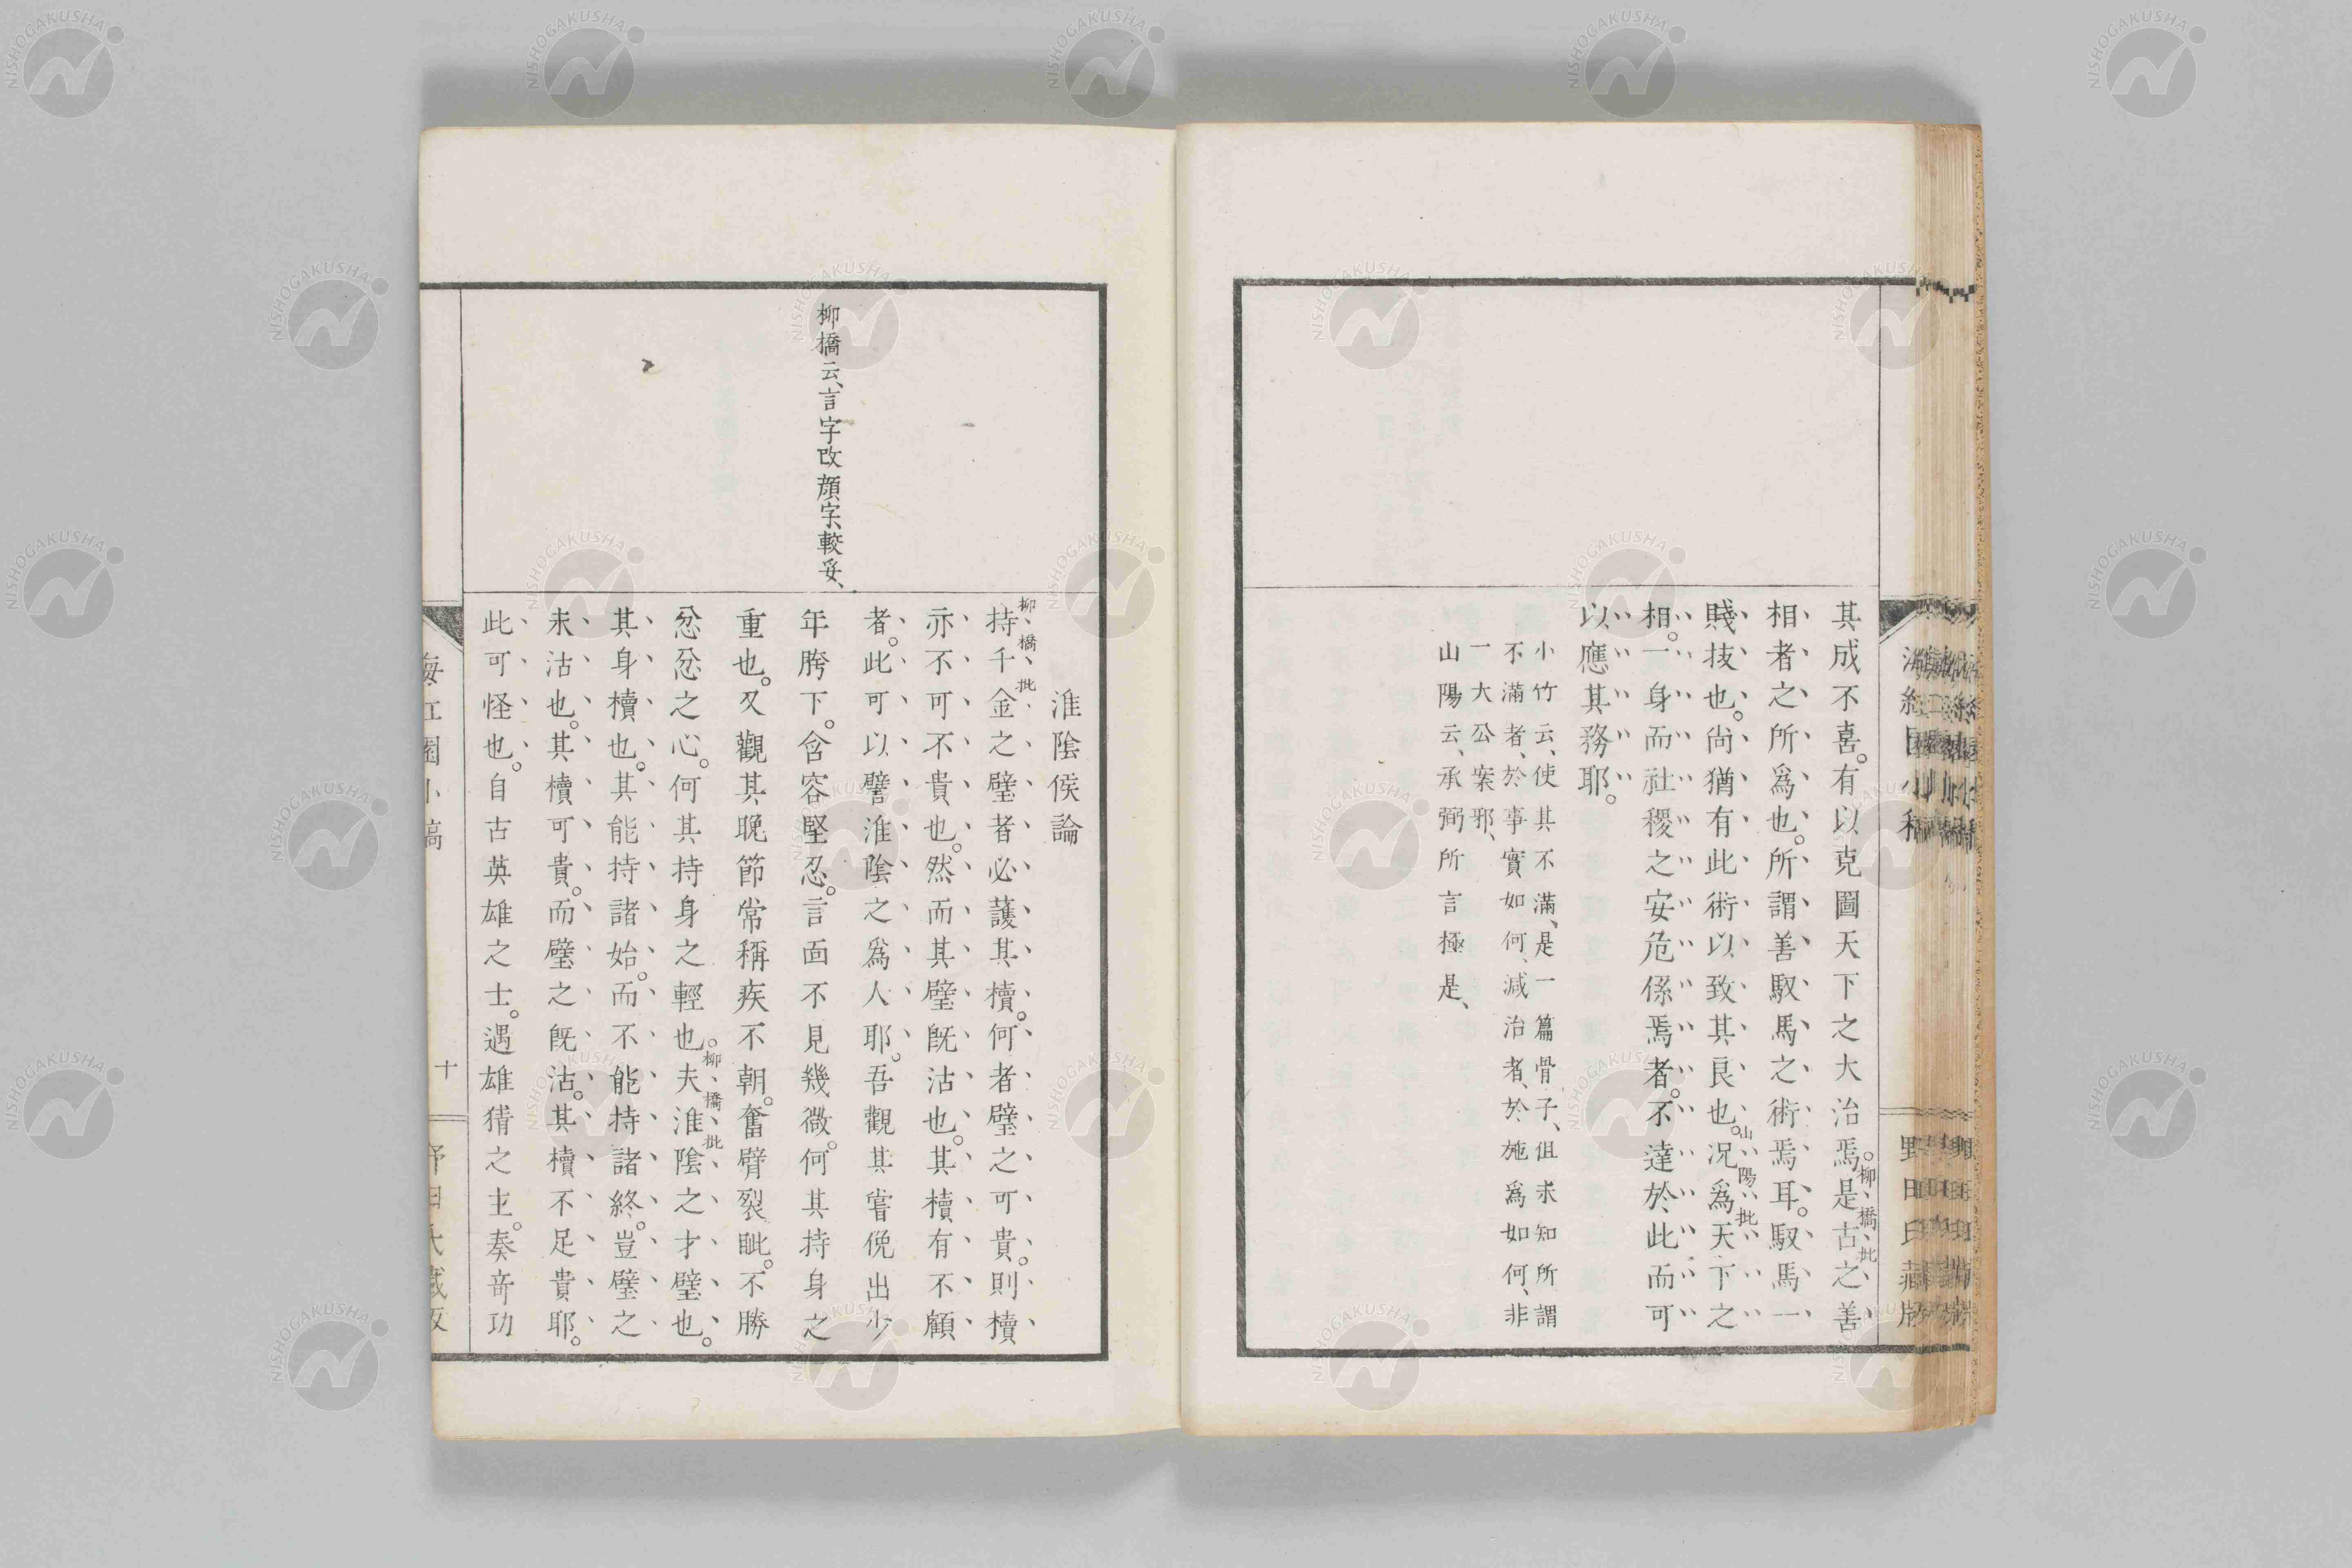 其成不喜。有以克圖天下之大治焉。是古之善
柳橋批
相者之所爲也。所謂善馭馬之術焉耳。馭馬一
賤技也。尙猶有此術以致其良也。況爲天下之
山陽批
相。一身而社稷之安危係焉者。不達於此而可
以應其務耶。
小竹云、使其不滿、是一篇骨子、但求知所謂
不滿者、於事實如何、減治者、於施爲如何、非
一大公案邪、
山陽云、承弼所言極是、
野田氏藏版
淮陰侯論
柳橋批
持千金之璧者必護其櫝。何者璧之可貴。則櫝
亦不可不貴也。然而其璧旣沽也。其櫝有不顧
者。此可以譬淮陰之爲人耶。吾觀其嘗俛出少
年胯下。含容堅忍。言面不見幾微。何其持身之
柳橋云、言字改顏字、較妥、
重也。又觀其晚節常稱疾不朝。奮臂裂眦。不勝
忿忿之心。何其持身之輕也。夫淮陰之才璧也。
柳橋批
其身櫝也。其能持諸始。而不能持諸終。豈璧之
未沽也。其櫝可貴。而璧之旣沽。其櫝不足貴耶。
此可怪也。自古英雄之士。遇雄猜之主。奏奇功
十